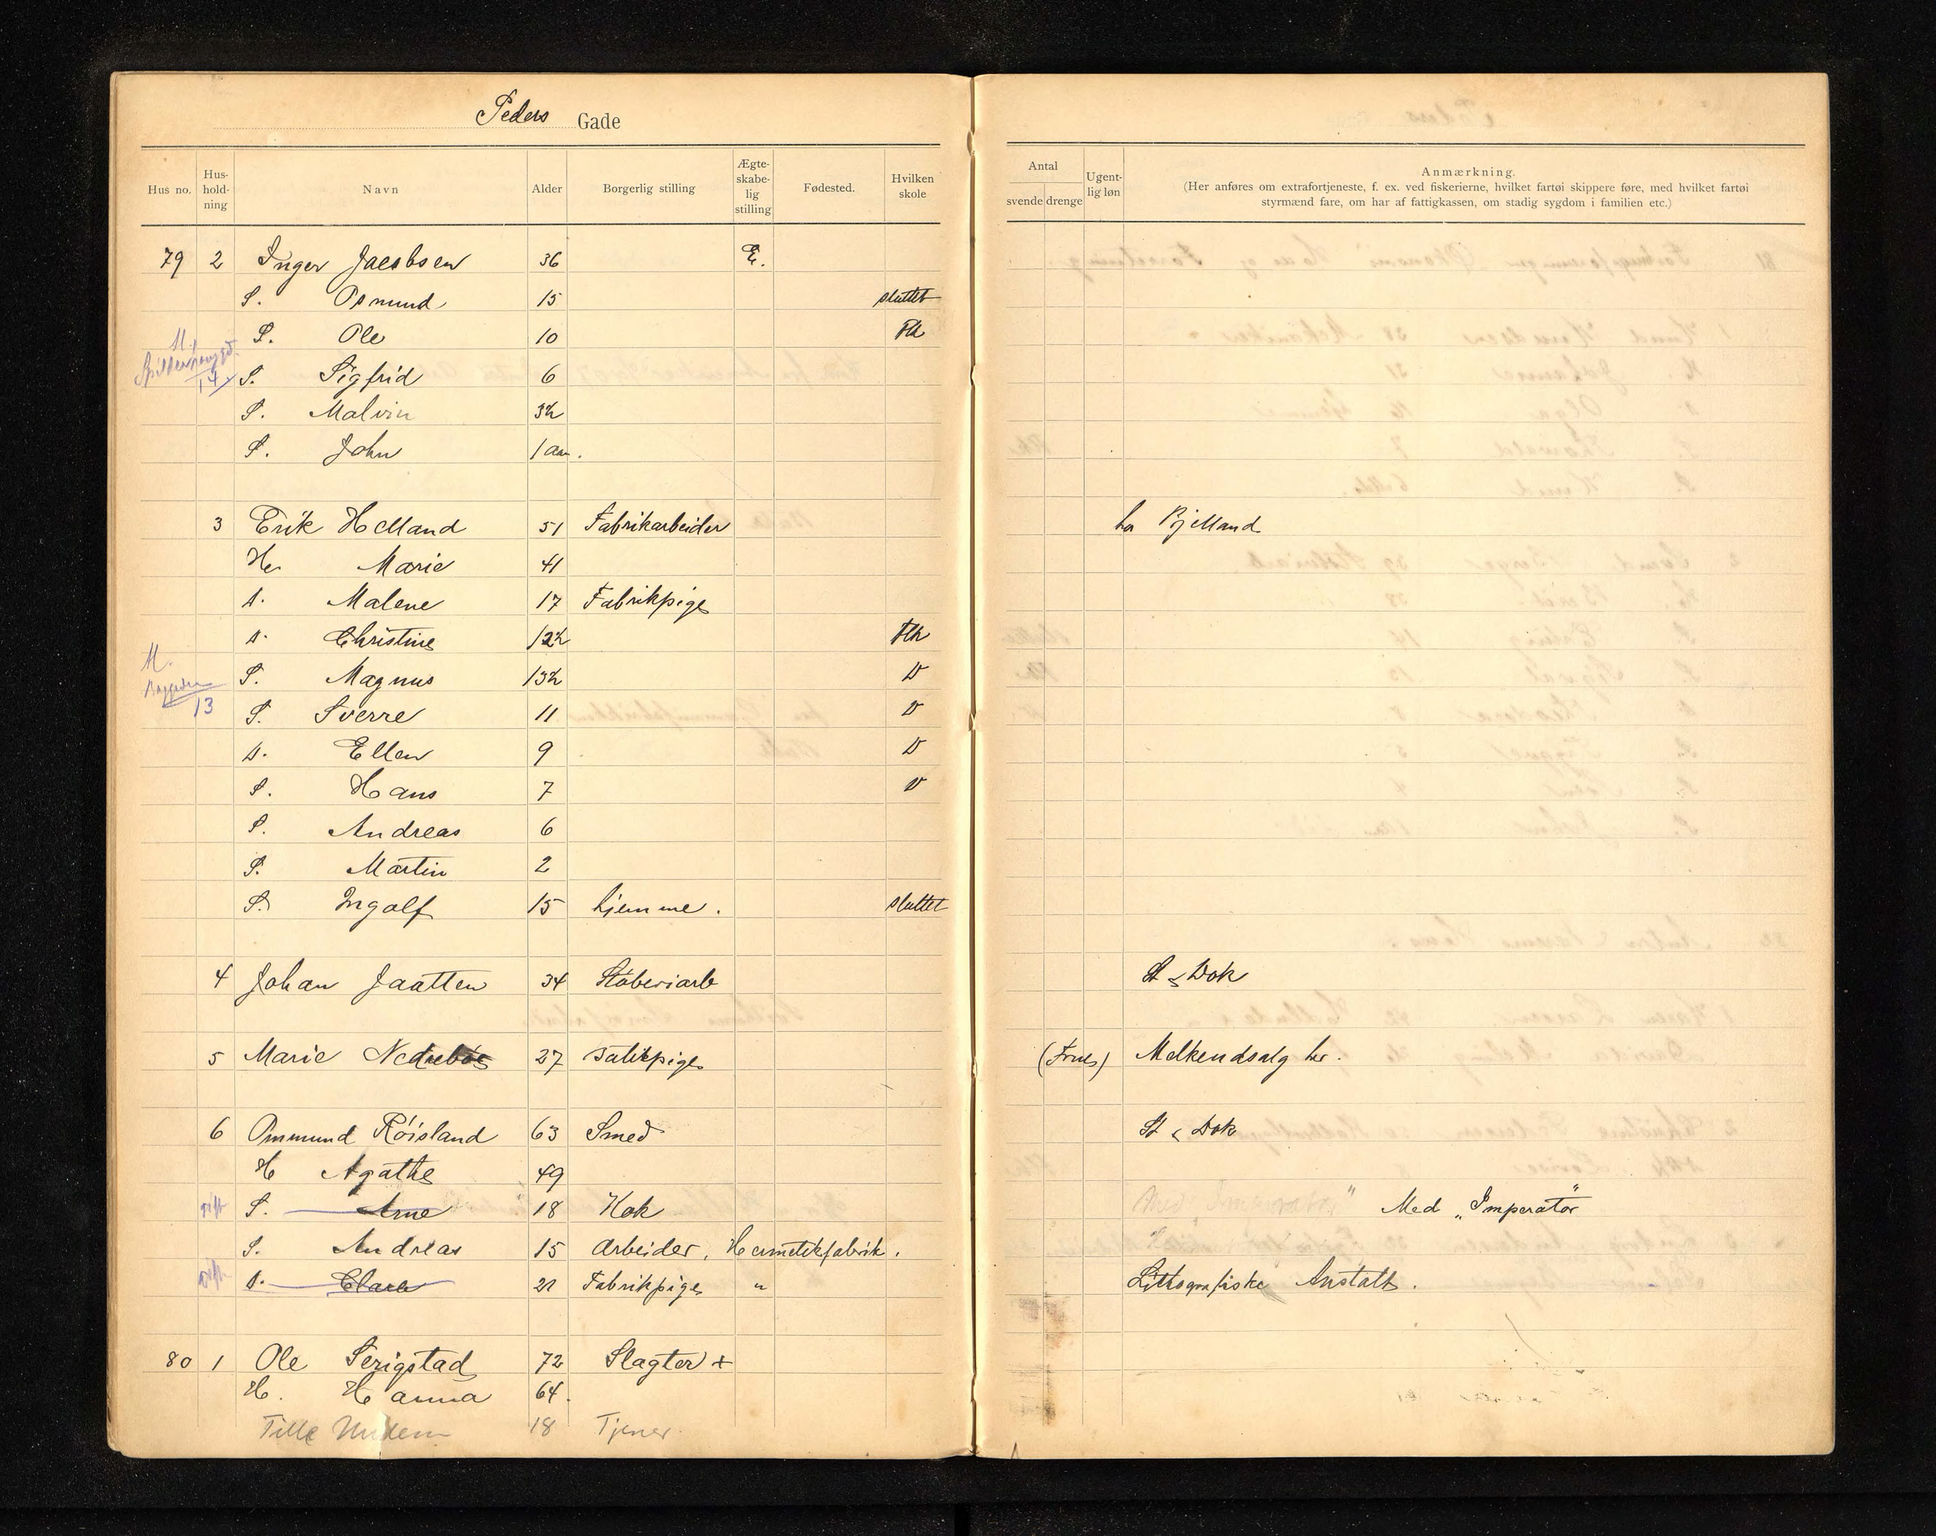 Peders Gade
Hus no. Hus-hold-ning Navn Alder Borgerlig stilling Ægte-skabe-lig stilling Fødested. Hvilken skole
Antal svende drenge Ugent-lig løn Anmærkning.
(Her anføres om extrafortjeneste, f. ex. ved fiskerierne, hvilket fartøi skippere føre, med hvilket fartøi
styrmænd fare, om har af fattigkassen, om stadig sygdom i familien etc.)
79 2 Inger Jacobsen 36 E.
S. Osmund 15 sluttet
M.
S. Ole 10 Flk
S. Sigfrid 6
14
S. Malvin 3½
S. John 1 aar.
3 Erik Helland 51 Fabrikarbeider hos Bjelland
H. Marie 41
D. Malene 17 Fabrikpige
D. Christine 12½ Flk
M.
S. Magnus 13½ D
13
S. Sverre 11 D
D. Ellen 9 D
S. Hans 7 D
S. Andreas 6
S. Martin 2
S. Ingolf 15 hjemme. sluttet
4 Johan Jaatten 34 Støberiarb St & Dok
5 Marie Nedrebøe 27 Butikpige (Frues) Melkeudsalg her.
6 Ommund Røisland 63 Smed St & Dok
H Agathe 49
S. Arne 18 Kok Med "Imperator" Med „Imperator"
S. Andreas 15 Arbeider, Hermetikfabrik.
D. Clara 21 Fabrikpige " Lithografiske Anstalt.
80 1 Ole Serigstad 72 Slagter +
H. Hanna 64.
Tille 18 Tjener